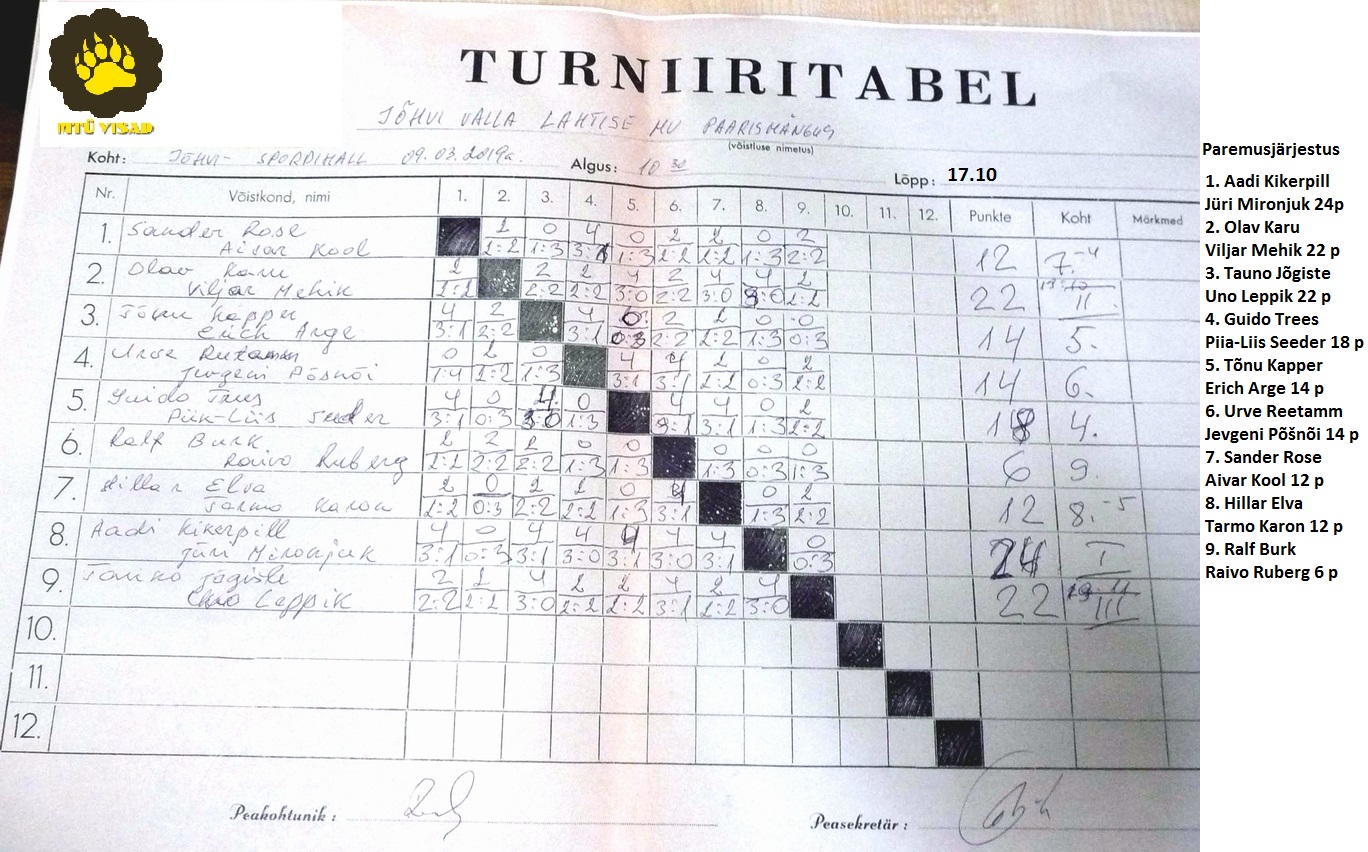 MTÜ VISAD
TURNIIRITABEL
JÕHVI VALLA LAHTISE MV PAARISMÄNGUS
(võistluse nimetus)
Koht: JÕHVI- SPORDIHALL 09.03.2019a. Algus: 10 30 Lõpp: 17.10
Nr. Võistkond, nimi 1. 2. 3. 4. 5. 6. 7. 8. 9. 10. 11. 12. Punkte Koht Märkmed
1. Sander Rose 2 0 4 0 2 2 0 2
Aivar Kool 2:2 1:3 3:1 1:3 2:2 2:2 1:3 2:2 12 7. -4
2. Olav Karu 2 2 2 4 2 4 4 2
Viljar Mehik 2:2 2:2 2:2 3:0 2:2 3:0 3:0 2:2 22 II
3. Tõnu Kapper 4 2 4 0 2 2 0 0
Erich Arge 3:1 2:2 3:1 0:3 2:2 2:2 1:3 0:3 14 5.
4. Urve Reetamm 0 2 0 4 4 2 0 2
Jevgeni Põšnõi 1:4 2:2 1:3 3:1 3:1 2:2 0:3 2:2 14 6.
5. Guido Trees 4 0 4 0 4 4 0 2
Piia-Liis Seeder 3:1 0:3 3:0 1:3 3:1 3:1 1:3 2:2 18 4.
6. Ralf Burk 2 2 2 0 0 0 0 0
Raivo Ruberg 2:2 2:2 2:2 1:3 1:3 1:3 0:3 1:3 6 9.
7. Hillar Elva 2 0 2 2 0 4 0 2
Tarmo Karon 2:2 0:3 2:2 2:2 1:3 3:1 1:3 2:2 12 8. -5
8. Aadi Kikerpill 4 0 4 4 4 4 4 0
Jüri Mironjuk 3:1 0:3 3:1 3:0 3:1 3:0 3:1 0:3 24 I
9. Tauno Jõgiste 2 2 4 2 2 4 2 4
Uno Leppik 2:2 2:2 3:0 2:2 2:2 3:1 2:2 3:0 22 III
10.
11.
12.
Peakohtunik: Peasekretär:
Paremusjärjestus
1. Aadi Kikerpill
Jüri Mironjuk 24p
2. Olav Karu
Viljar Mehik 22 p
3. Tauno Jõgiste
Uno Leppik 22 p
4. Guido Trees
Piia-Liis Seeder 18 p
5. Tõnu Kapper
Erich Arge 14 p
6. Urve Reetamm
Jevgeni Põšnõi 14 p
7. Sander Rose
Aivar Kool 12 p
8. Hillar Elva
Tarmo Karon 12 p
9. Ralf Burk
Raivo Ruberg 6 p